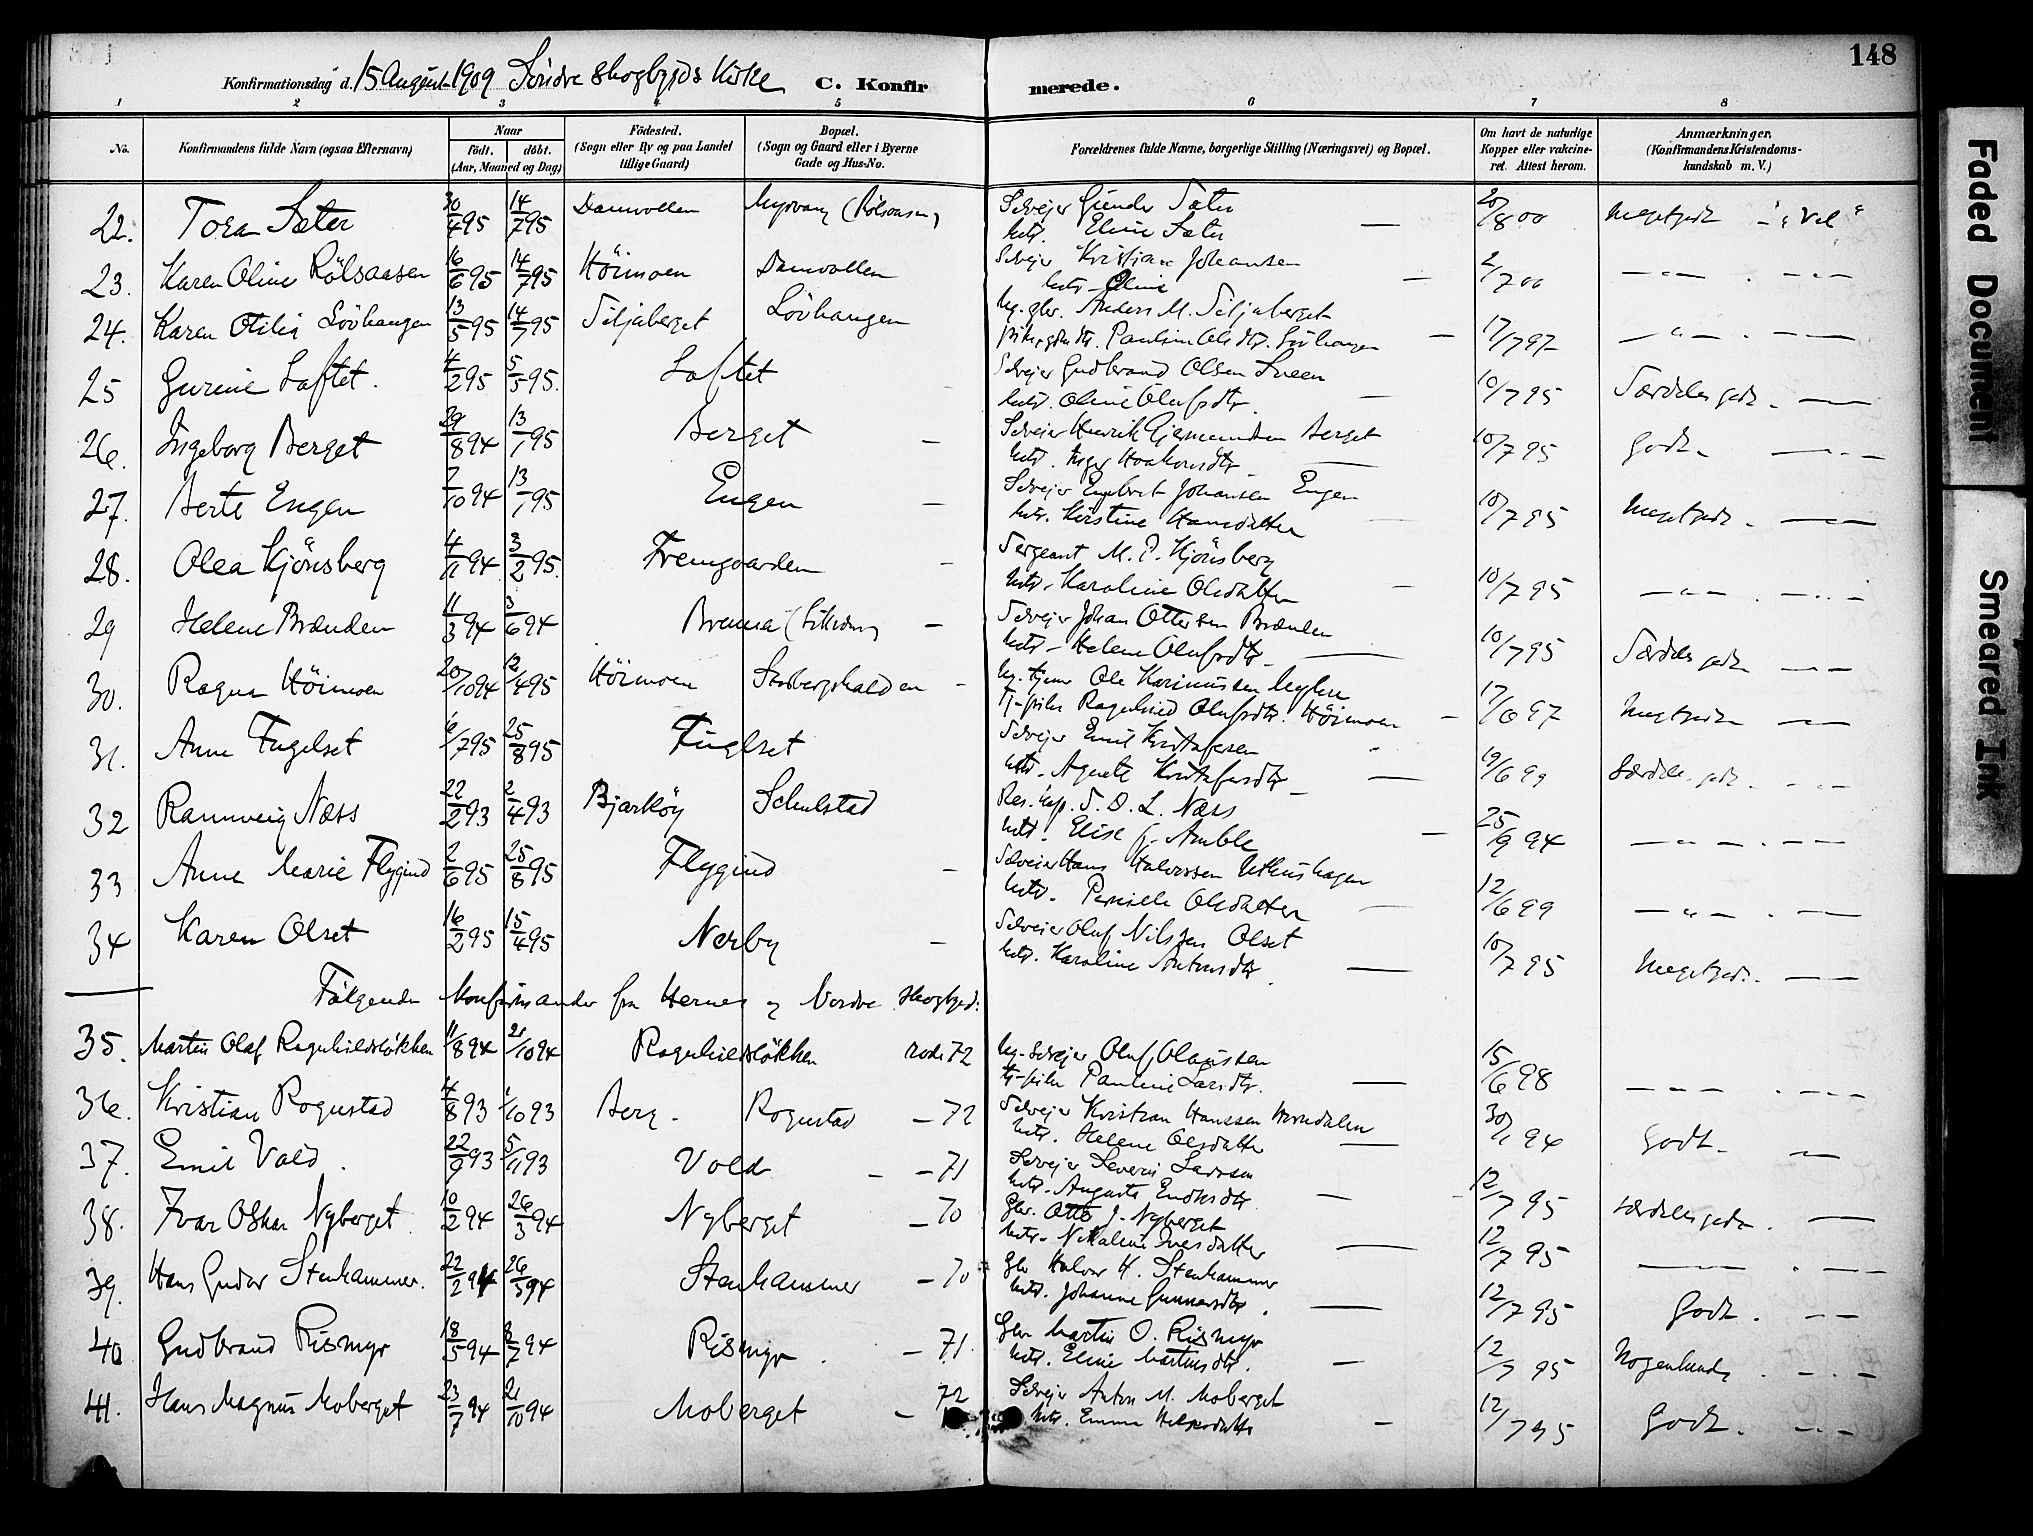 148
Konfirmationsdag d. 15 August 1909 Söndre Skogbygds Kirke C. Konfirmerede.
1 2 3 4 5 6 7 8
No. Konfirmandens fulde Navn (ogsaa Efternavn) Naar Födt. döbt. (Aar, Maaned og Dag) Födested. (Sogn eller By og paa Landet tillige Gaard) Bopæl. (Sogn og Gaard eller i Byerne Gade og Hus-No. Forældrenes fulde Navne, borgerlige Stilling (Næringsvei) og Bopæl. Om havt de naturlige Kopper eller vakcineret. Attest herom. Anmærkninger. (Konfirmandens Kristendomskundskab m. V.)
22. Tora Sæter 30/4 95 14/7 95 Damvollen Selvejer Gunder Sæter 20/8 00 Megetgodt - "Vel"
hstr. Eline Sæter
23. Karen Oline Rölsaasen 16/6 95 14/7 95 Höimoen Damvollen Selvejer Kristian Johansen 2/7 00 — " —
hstr - Oline
24. Karen Otilia Lövhaugen 13/5 95 14/7 95 Siljaberget Lövhaugen Anders M. Siljaberget
Pauline Olsdtr. Lövhaugen 17/7 97 — " —
25 Gurine Loftet. 4/2 95 5/5 95. Loftet Selvejer Gudbrand Olsen Sneen 10/7 95 Særdeles godt. —
hstr. Oline Olufsdtr.
26. Ingeborg Berget 29/8 94 13/1 95 Berget — Selveier Henrik Berget 10/7 95 Godt.
hstr. Inger Haakonsdtr.
27. Berte Engen 7/10 94 13/1 95 Engen — Selvejer Engebret Johansen Engen 10/7 95 Megetgodt. —
hstr. Kirstine Hansdatter
28. Olea Kjönsberg 4/11 94. 3/2 95. Fremgaarden — Sergeant M. P. Kjönsberg 10/7 95 — " —
hstr. Karoline Olsdatter
29 Helene Brænden 11/3 94 3/6 94 Brenna — Selvejer Johan Ottersen Brænden 10/7 95 Særdeles godt —
hstr - Helene Olufsdtr.
30. Ragna Höimoen 20/10 94 12/4 95 Höimoen — Ole
Ragnhild Olufsdtr. Höimoen 17/6 97 Megetgodt —
31. Anne Fugelset 6/7 95 25/8 95 Fuglset Selvejer Emil Kristofersen 19/6 99 Særdeles godt.
hstr. Agnete Kristofersdtr
32 Rannveig Næss 22/2 93 2/4 93 Bjarköy Schulstad Res. kap. S. O. L. Næss 25/9 94 — " —
hstr. Elise G. Amble
33 Anne Marie Flygind 2/6 95 25/8 95 Flygind — Selveier Hans Halvorsen 12/6 99 — " —
hstr. Pernille Olsdatter
34 Karen Olset 16/2 95 15/4 95 Nerby — Selveier Oluf Nilssen Olset 10/7 95 Megetgodt. —
hstr. Karoline Antonsdtr.
Fölgende Konfirmander fra Hernes og Nordre Skogbygd:
35. Martin Olaf Ragnhildslökken 11/8 94 21/10 94 Ragnhildslökken rode 72 Ug. Selvejer Oluf Olaussen 15/6 98 — " —
Pauline Larsdtr.
36. Kristian Rogustad 4/8 93 1/10 93 Berg. Rogustad — 72 Selvejer Kristian Hanssen 30/1 94 Godt. —
hstr. Helene Olsdatter
37. Emil Vold. 22/9 93 5/11 93 Vold — 71 Selvejer Severin Larssen 12/7 95 Særdeles godt. —
hstr. Augusta Endresdtr
38. Ivar Oskar Nyberget 10/2 94 26/3 94 Nyberget — 70 Gbr. Otto J. Nyberget 12/7 95
hstr. Nikoline Iversdatter
39. Hans Gudar Stenhammer. 22/2 94 26/3 94 Stenhammer — 70 Gbr Halvor H. Stenhammer 12/7 95 Godt. —
hstr. Johanne Gunnarsdtr.
40 Gudbrand Rismyr 18/5 94 8/7 94 Rismyr. — 71. Gbr Martin O. Rismyr 12/7 95 Nogenlunde
hstr. Eline Martinsdtr.
41. Hans Magnus Moberget 23/7 94 21/10 94 Moberget — 72 Selvejer Anton M. Moberget 12/7 95 Godt.
hstr. Emma
Faded Document
Smeared Ink